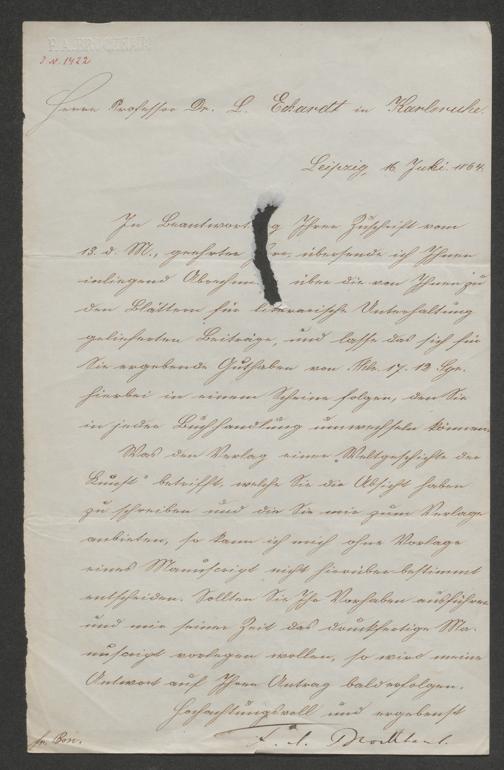 F. A. BROCKHAUS
J. N. 1422
Herrn Professor Dr. L. Eckardt in Karlsruhe.
Leipzig, 16 Juli. 1864.
In Beantwort g Ihrer Zuschrift vom
13. d. M., geehrter Herr, übersende ich Ihnen
inliegend Abrechn über die von Ihnen zu
den Blättern für literarische Unterhaltung
gelieferten Beiträge, und lasse das sich für
Sie ergebende Guthaben von Rth. 17. 12 Sgr.
hierbei in einem Scheine folgen, den Sie
in jeder Buchhandlung umwechseln können.
Was den Verlag einer "Weltgeschichte der
Kunst" betrifft, welche Sie die Absicht haben
zu schreiben und die Sie mir zum Verlage
anbieten, so kann ich mich ohne Vorlage
eines Manuscript nicht hierüber bestimmt
entscheiden. Sollten Sie Ihr Vorhaben ausführen
und mir seiner Zeit das druckfertige Ma-
nuscript vorlegen wollen, so wird meine
Antwort auf Ihren Antrag bald erfolgen.
Hochachtungsvoll und ergebenst
F. A. Brockhaus.